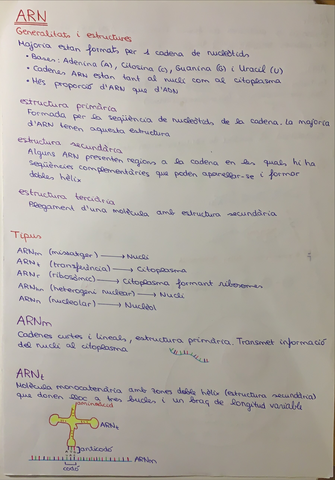 ARN
Generalitats i estructures
Majoria estan formats per 1 cadena de nucleòtids
• Bases: Adenina (A), Citosina (C), Guanina (G) i Uracil (U)
• Cadenes ARN estan tant al nucli com al citoplasma
• Més proporció d'ARN que d'ADN
estructura primària
Formada per la seqüència de nucleòtids de la cadena. La majoria
d'ARN tenen aquesta estructura
estructura secundària
Alguns ARN presenten regions a la cadena en les quals hi ha
seqüències complementàries que poden aparellar-se i formar
dobles hèlix
estructura terciària
Plegament d'una molècula amb estructura secundària
Tipus
ARNm (missatger) → Nucli
ARNt (transferència) → Citoplasma
ARNr (ribosòmic) → Citoplasma formant ribosomes
ARNhn (heterogeni nuclear) → Nucli
ARNn (nucleolar) → Nuclèol
ARNm
Cadenes curtes i lineals, estructura primària. Transmet informació
del nucli al citoplasma
ARNt
Molècula monocatenària amb zones doble hèlix (estructura secundària)
que donen lloc a tres bucles i un braç de longitud variable
aminoàcid
ARNt
anticodó
ARNm
codó